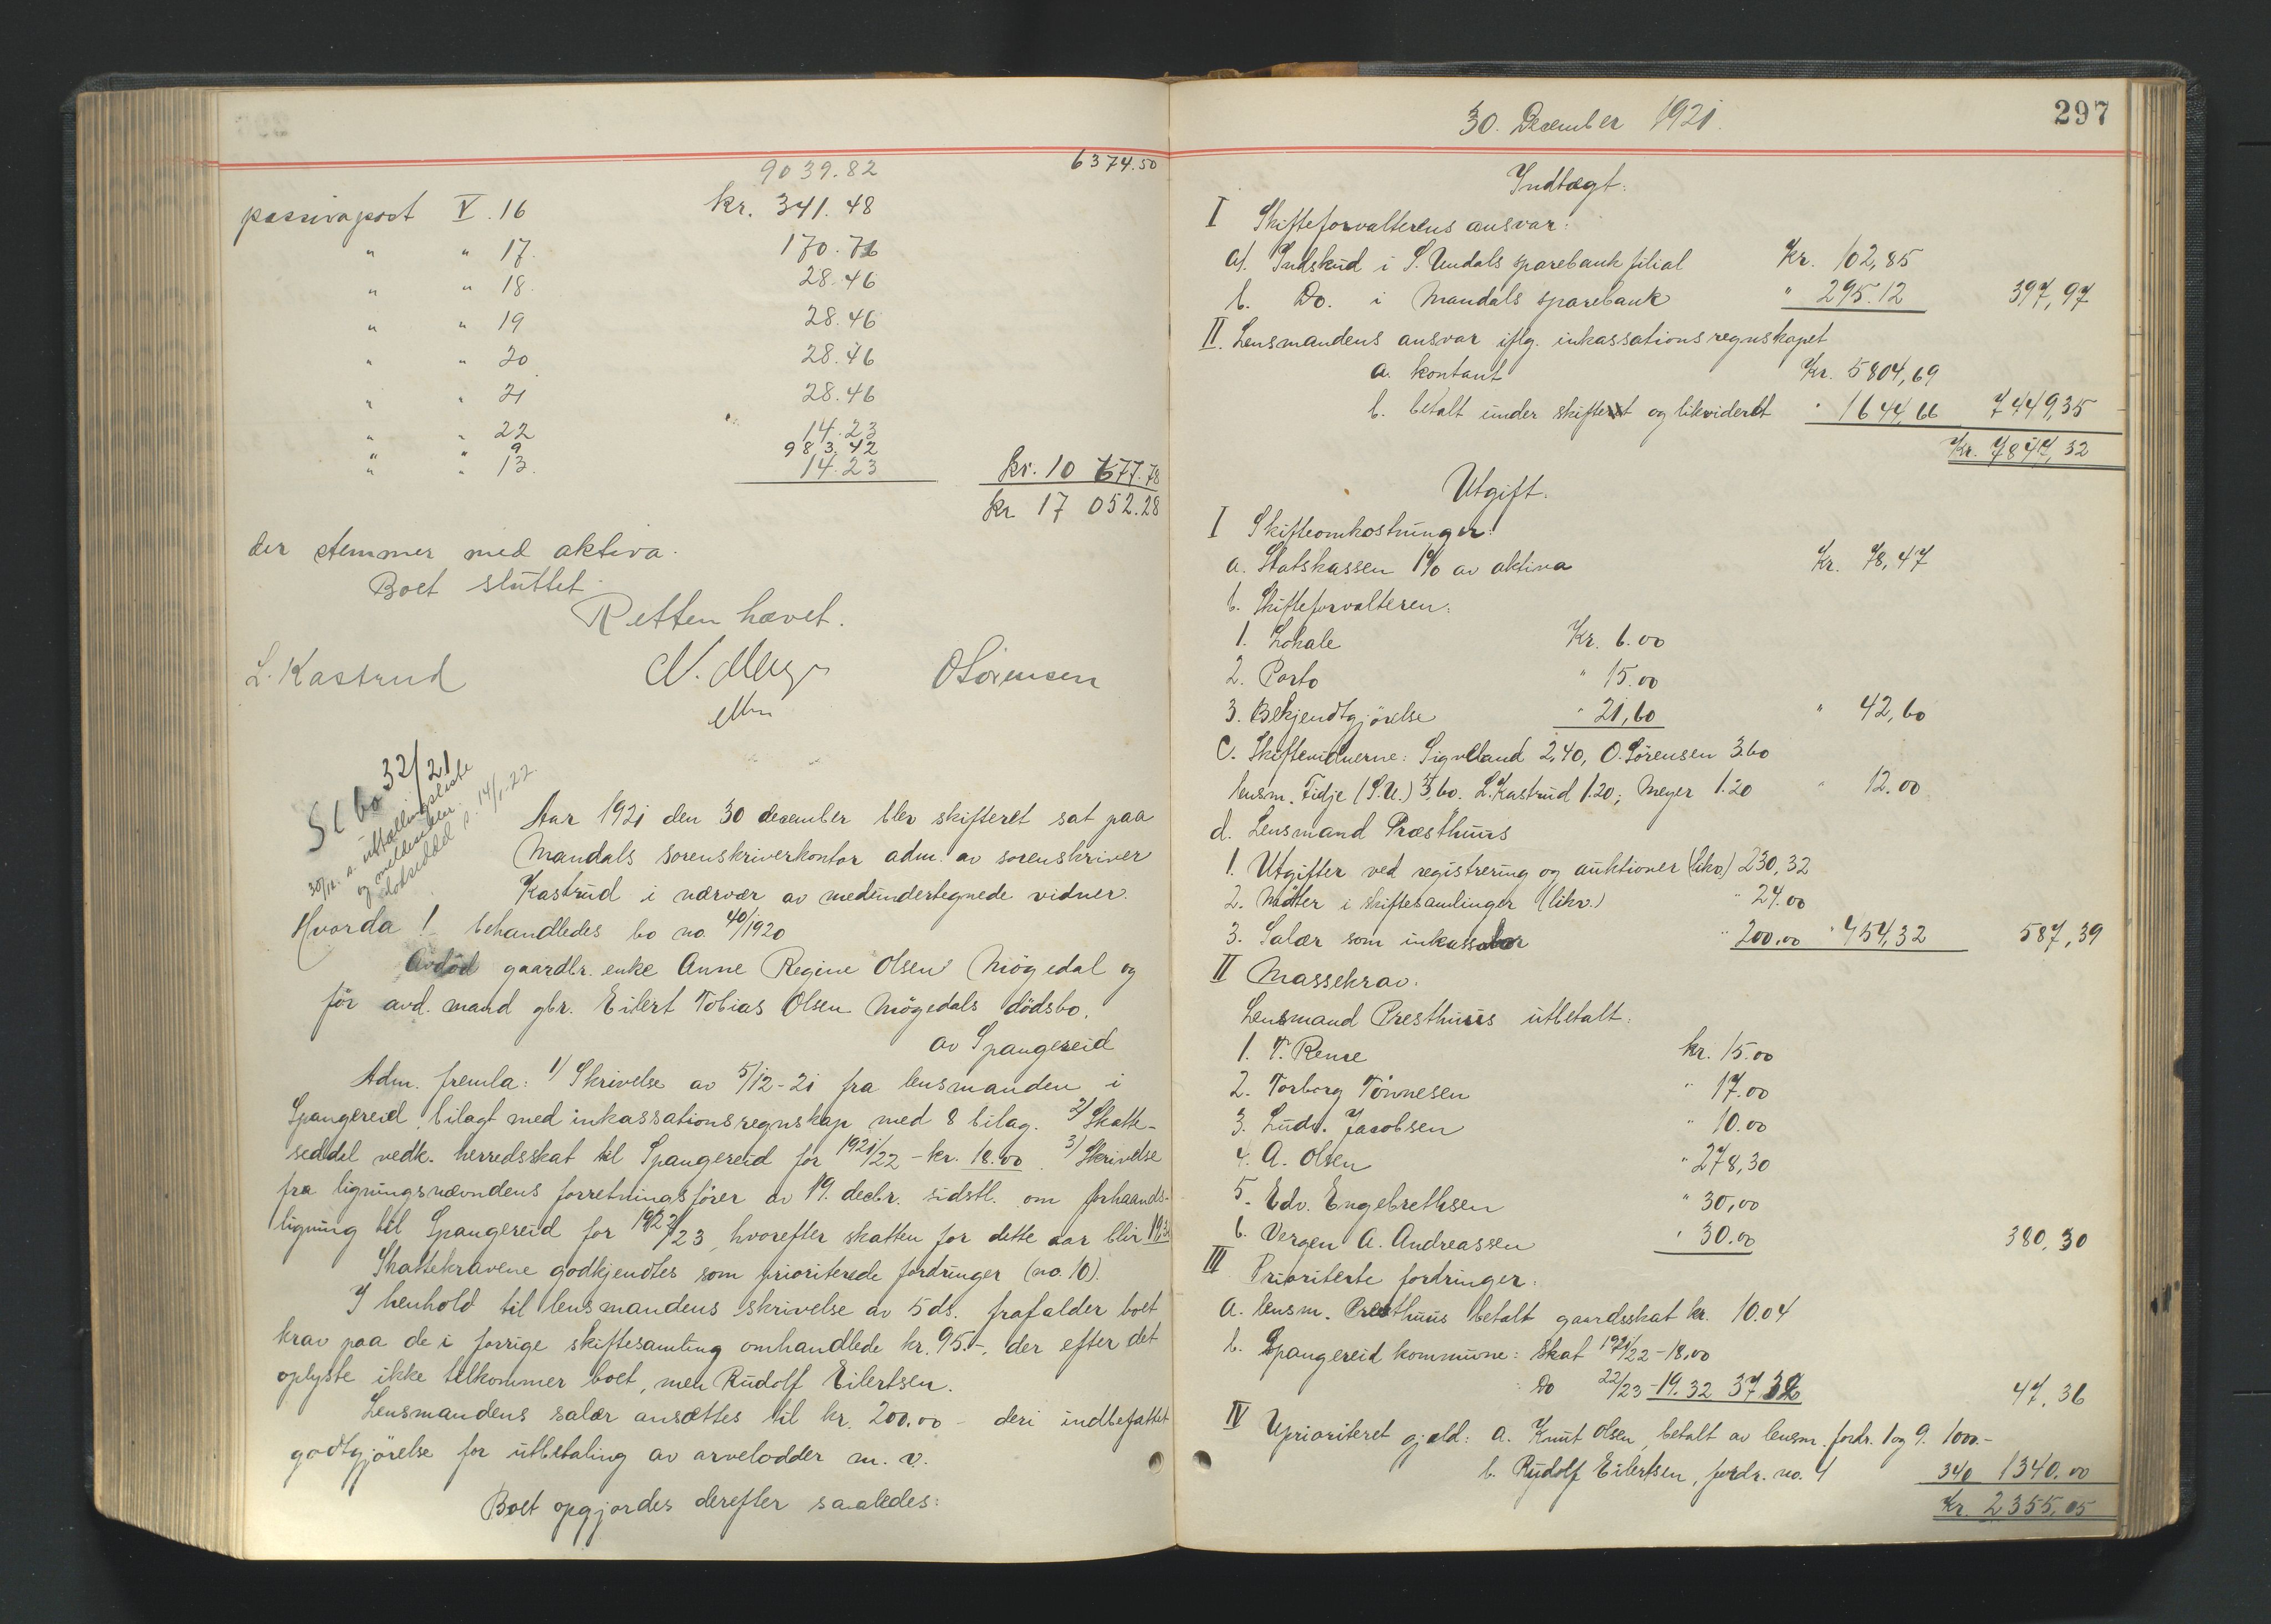 9039.82 6374.50
passivapost V. 16 kr. 341.48
" " 17. 170.76
" " 18. 28.46
" " 19 28.46
" " 20 28.46
" " 21 28.46
" " 22 14.23
" " 9 983.42
" " 13. 14.23 kr. 10 677.78
kr 17 052.28
der stemmer med aktiva.
Boet sluttet.
Retten hævet.
L. Kastrud N. Meyer O Sörensen
Sc bo 32/21
30/12. s. utlodningsliste
og meldesedler.
dodsseddel s. 14/1-22
Aar 1921 den 30 december blev skifteret sat paa
Mandals sorenskriverkontor adm. av sorenskriver
Kastrud i nærvær av medundertegnede vidner.
Hvorda! behandledes bo no. 40/1920
Avdöd gaardbr. enke Anne Regine Olsen Mögedal og
för avd. mand gbr. Eilert Tobias Olsen Mögedals dödsbo.
av Spangereid
Adm. fremla: 1/ Skrivelse av 5/12-21 fra lensmanden i
Spangereid bilagt med inkassationsregnskap med 8 bilag. 2/ Skatte-
seddel vedk. herredsskat til Spangereid for 1921/22 - kr. 18.00. 3/ Skrivelse
fra ligningsnævndens forretningsförer av 19. decbr. sidstl. om forhaands-
ligning til Spangereid for 1922/23, hvorefter skatten for dette aar blir 19.32
Skattekravene godkjendtes som prioriterede fordringer (no. 10).
I henhold til lensmandens skrivelse av 5 ds. frafalder boet
krav paa de i forrige skiftesamling omhandlede kr. 95.-, der efter det
oplyste ikke tilkommer boet, men Rudolf Eilertsen.
Lensmandens salær ansættes til kr. 200.00 - deri indbefattet
godtgjörelse for utbetaling av arvelodder m. v.
Boet opgjordes derefter saaledes:
30. December 1921. 297
Indtægt:
I Skifteforvalterens ansvar:
a). Indskud i S. Undals sparebank filial Kr. 102,85
b. Do. i Mandals sparebank " 295.12 397,97
II. Lensmandens ansvar iflg. inkassationsregnskapet
a. kontant Kr. 5804,69
b. betalt under skiftet og likvidert " 1644,66 7449,35
Kr. 7847,32
Utgift.
I Skifteomkostninger:
a. Statskassen 1% av aktiva Kr. 78,47
b. Skifteforvalteren:
1. Lokale Kr. 6.00
2. Porto " 15.00
3. Bekjendtgjörelse " 21,60 " 42,60
C. Skiftevidnerne: Sigveland 2,40, O. Sörensen 3.60
lensm. Fidje (S.U.) 3,60. L. Kastrud 1.20; Meyer 1.20 " 12.00
d. Lensmand Præsthuus
1. Utgifter ved registrering og auktioner (likv.) 230,32
2. Möter i skiftesamlinger (likv.) " 24.00
3. Salær som inkassator " 200.00 " 454,32 587,39
II Massekrav.
Lensmand Presthuus utbetalt:
1. T. Rense kr. 15.00
2. Torborg Tönnesen " 17.00
3. Ludv. Jacobsen " 10.00
4. A. Olsen " 278,30
5. Edv. Engebrethsen " 30,00
6. Vergen A. Andreassen " 30.00 380,30
III Prioriterte fordringer:
a. lensm. Presthuus betalt gaardsskat kr. 10.04
b. Spangereid kommune: skat 1921/22 - 18,00
Do 22/23 - 19.32 37 32 47,36
IV Uprioriteret gjæld: a. Knut Olsen, betalt av lensm. fordr. 1 og 9. 1000.-
b. Rudolf Eilertsen, fordr. no. 4 340 1340.00
Kr. 2355,05